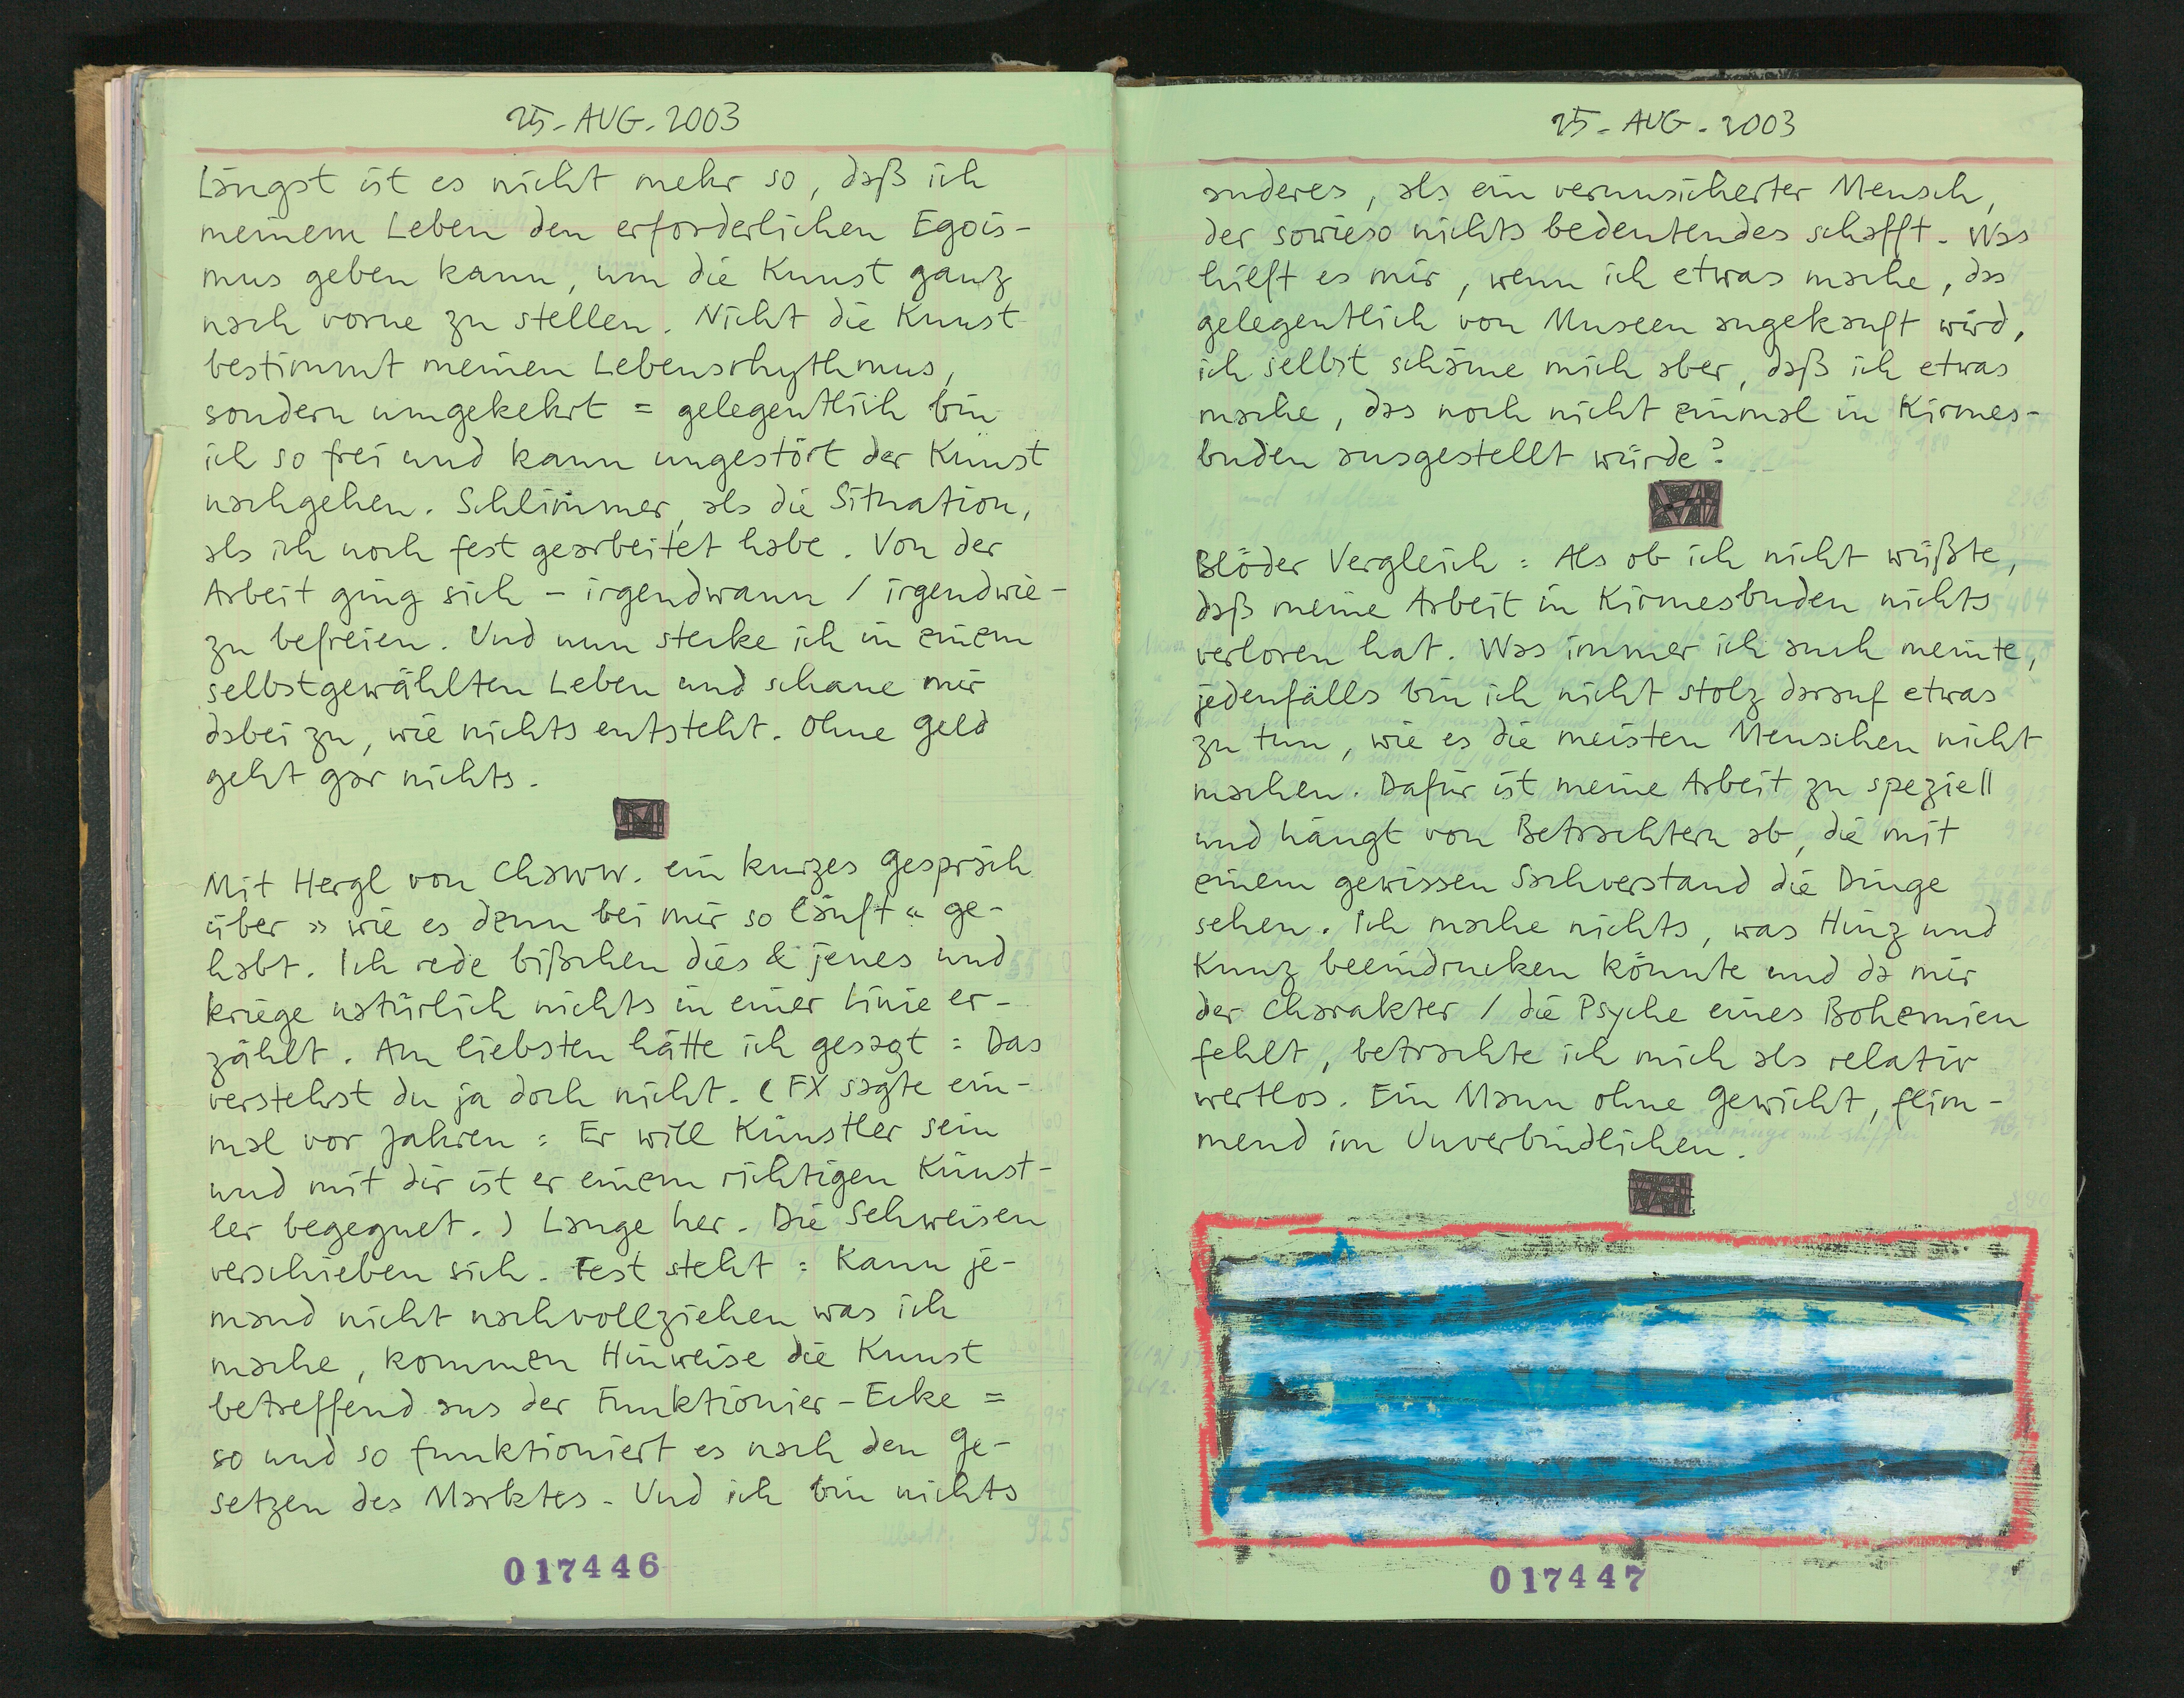 25-AUG-2003
Längst ist es nicht mehr so, daß ich
meinem Leben den erforderlichen Egois-
mus geben kann, um die Kunst ganz
nach vorne zu stellen. Nicht die Kunst
bestimmt meinen Lebensrhythmus,
sondern umgekehrt = gelegentlich bin
ich so frei und kann ungestört der Kunst
nachgehen. Schlimmer, als die Situation,
als ich noch fest gearbeitet habe. Von der
Arbeit ging sich - irgendwann / irgendwie -
zu befreien. Und nun stecke ich in einem
selbstgewählten Leben und schaue mir
dabei zu, wie nichts entsteht. Ohne Geld
geht gar nichts.
Mit Hergl von Chaww. ein kurzes Gespräch
über » wie es denn bei mir so läuft « ge-
habt. Ich rede bißchen dies & jenes und
kriege natürlich nichts in einer Linie er-
zählt. Am liebsten hätte ich gesagt: Das
verstehst du ja doch nicht. (FX sagte ein-
mal vor Jahren: Er will Künstler sein
und mit dir ist er einem richtigen Künst-
ler begegnet.) Lange her. Die Sehweisen
verschieben sich. Fest steht: Kann je-
mand nicht nachvollziehen was ich
mache, kommen Hinweise die Kunst
betreffend aus der Funktionier-Ecke =
so und so funktioniert es nach den Ge-
setzen des Marktes. Und ich bin nichts
017446
25-AUG-2003
anderes, als ein verunsicherter Mensch,
der sowieso nichts bedeutendes schafft. Was
hilft es mir, wenn ich etwas mache, das
gelegentlich von Museen angekauft wird,
ich selbst schäme mich aber, daß ich etwas
mache, das noch nicht einmal in Kirmes-
buden ausgestellt würde?
Blöder Vergleich: Als ob ich nicht wüßte,
daß meine Arbeit in Kirmesbuden nichts
verloren hat. Was immer ich auch meinte,
jedenfalls bin ich nicht stolz darauf etwas
zu tun, wie es die meisten Menschen nicht
machen. Dafür ist meine Arbeit zu speziell
und hängt von Betrachtern ab, die mit
einem gewissen Sachverstand die Dinge
sehen. Ich mache nichts, was Hinz und
Kunz beeindrucken könnte und da mir
der Charakter / die Psyche eines Bohemien
fehlt, betrachte ich mich als relativ
wertlos. Ein Mann ohne Gewicht, flim-
mend im Unverbindlichen.
017447